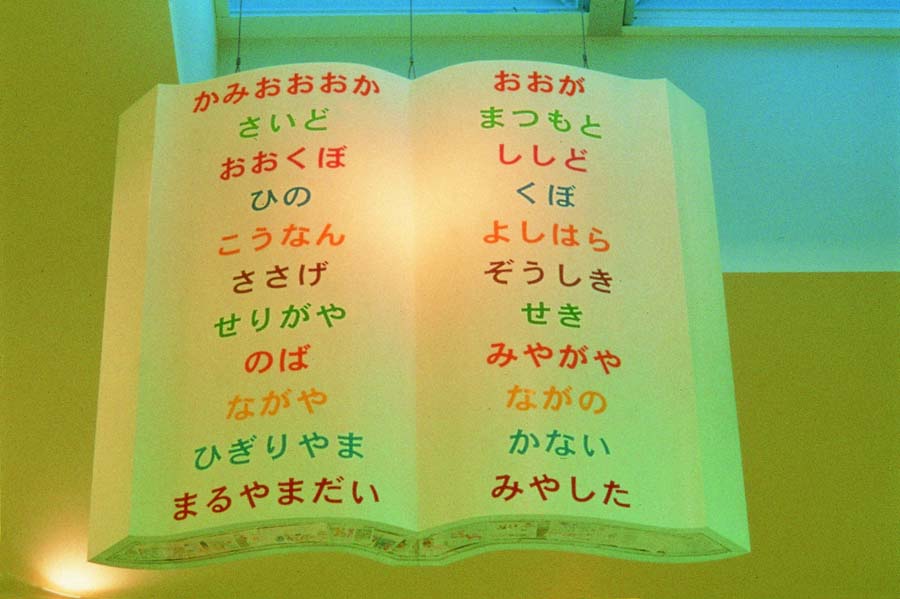 かみおおおか
さいど
おおくぼ
ひの
こうなん
ささげ
せりがや
のば
ながや
ひぎりやま
まるやまだい
おおが
まつもと
ししど
くぼ
よしはら
ぞうしき
せき
みやがや
ながの
かない
みやした